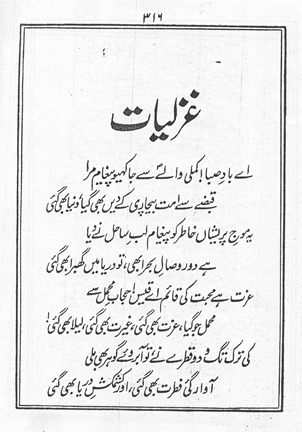 ۳۱۶
غزلیات
اے بادِ صبا! کملی والےؐ سے جا کہیو پیغام مرا
قبضے سے امت بیچاری کے دیں بھی گیا، دنیا بھی گئی
یہ موجِ پریشاں خاطر کو پیغام لبِ ساحل نے دیا
ہے دور وصالِ بحر ابھی، تو دریا میں گھبرا بھی گئی
عزت ہے محبت کی قائم اے قیس! حجابِ محمل سے
محمل جو گیا، عزت بھی گئی، غیرت بھی گئی، لیلا بھی گئی
کی ترک تگ و دو قطرے نے تو آبروئے گوہر بھی ملی
آوارگیِ فطرت بھی گئی، اور کشمکشِ دریا بھی گئی